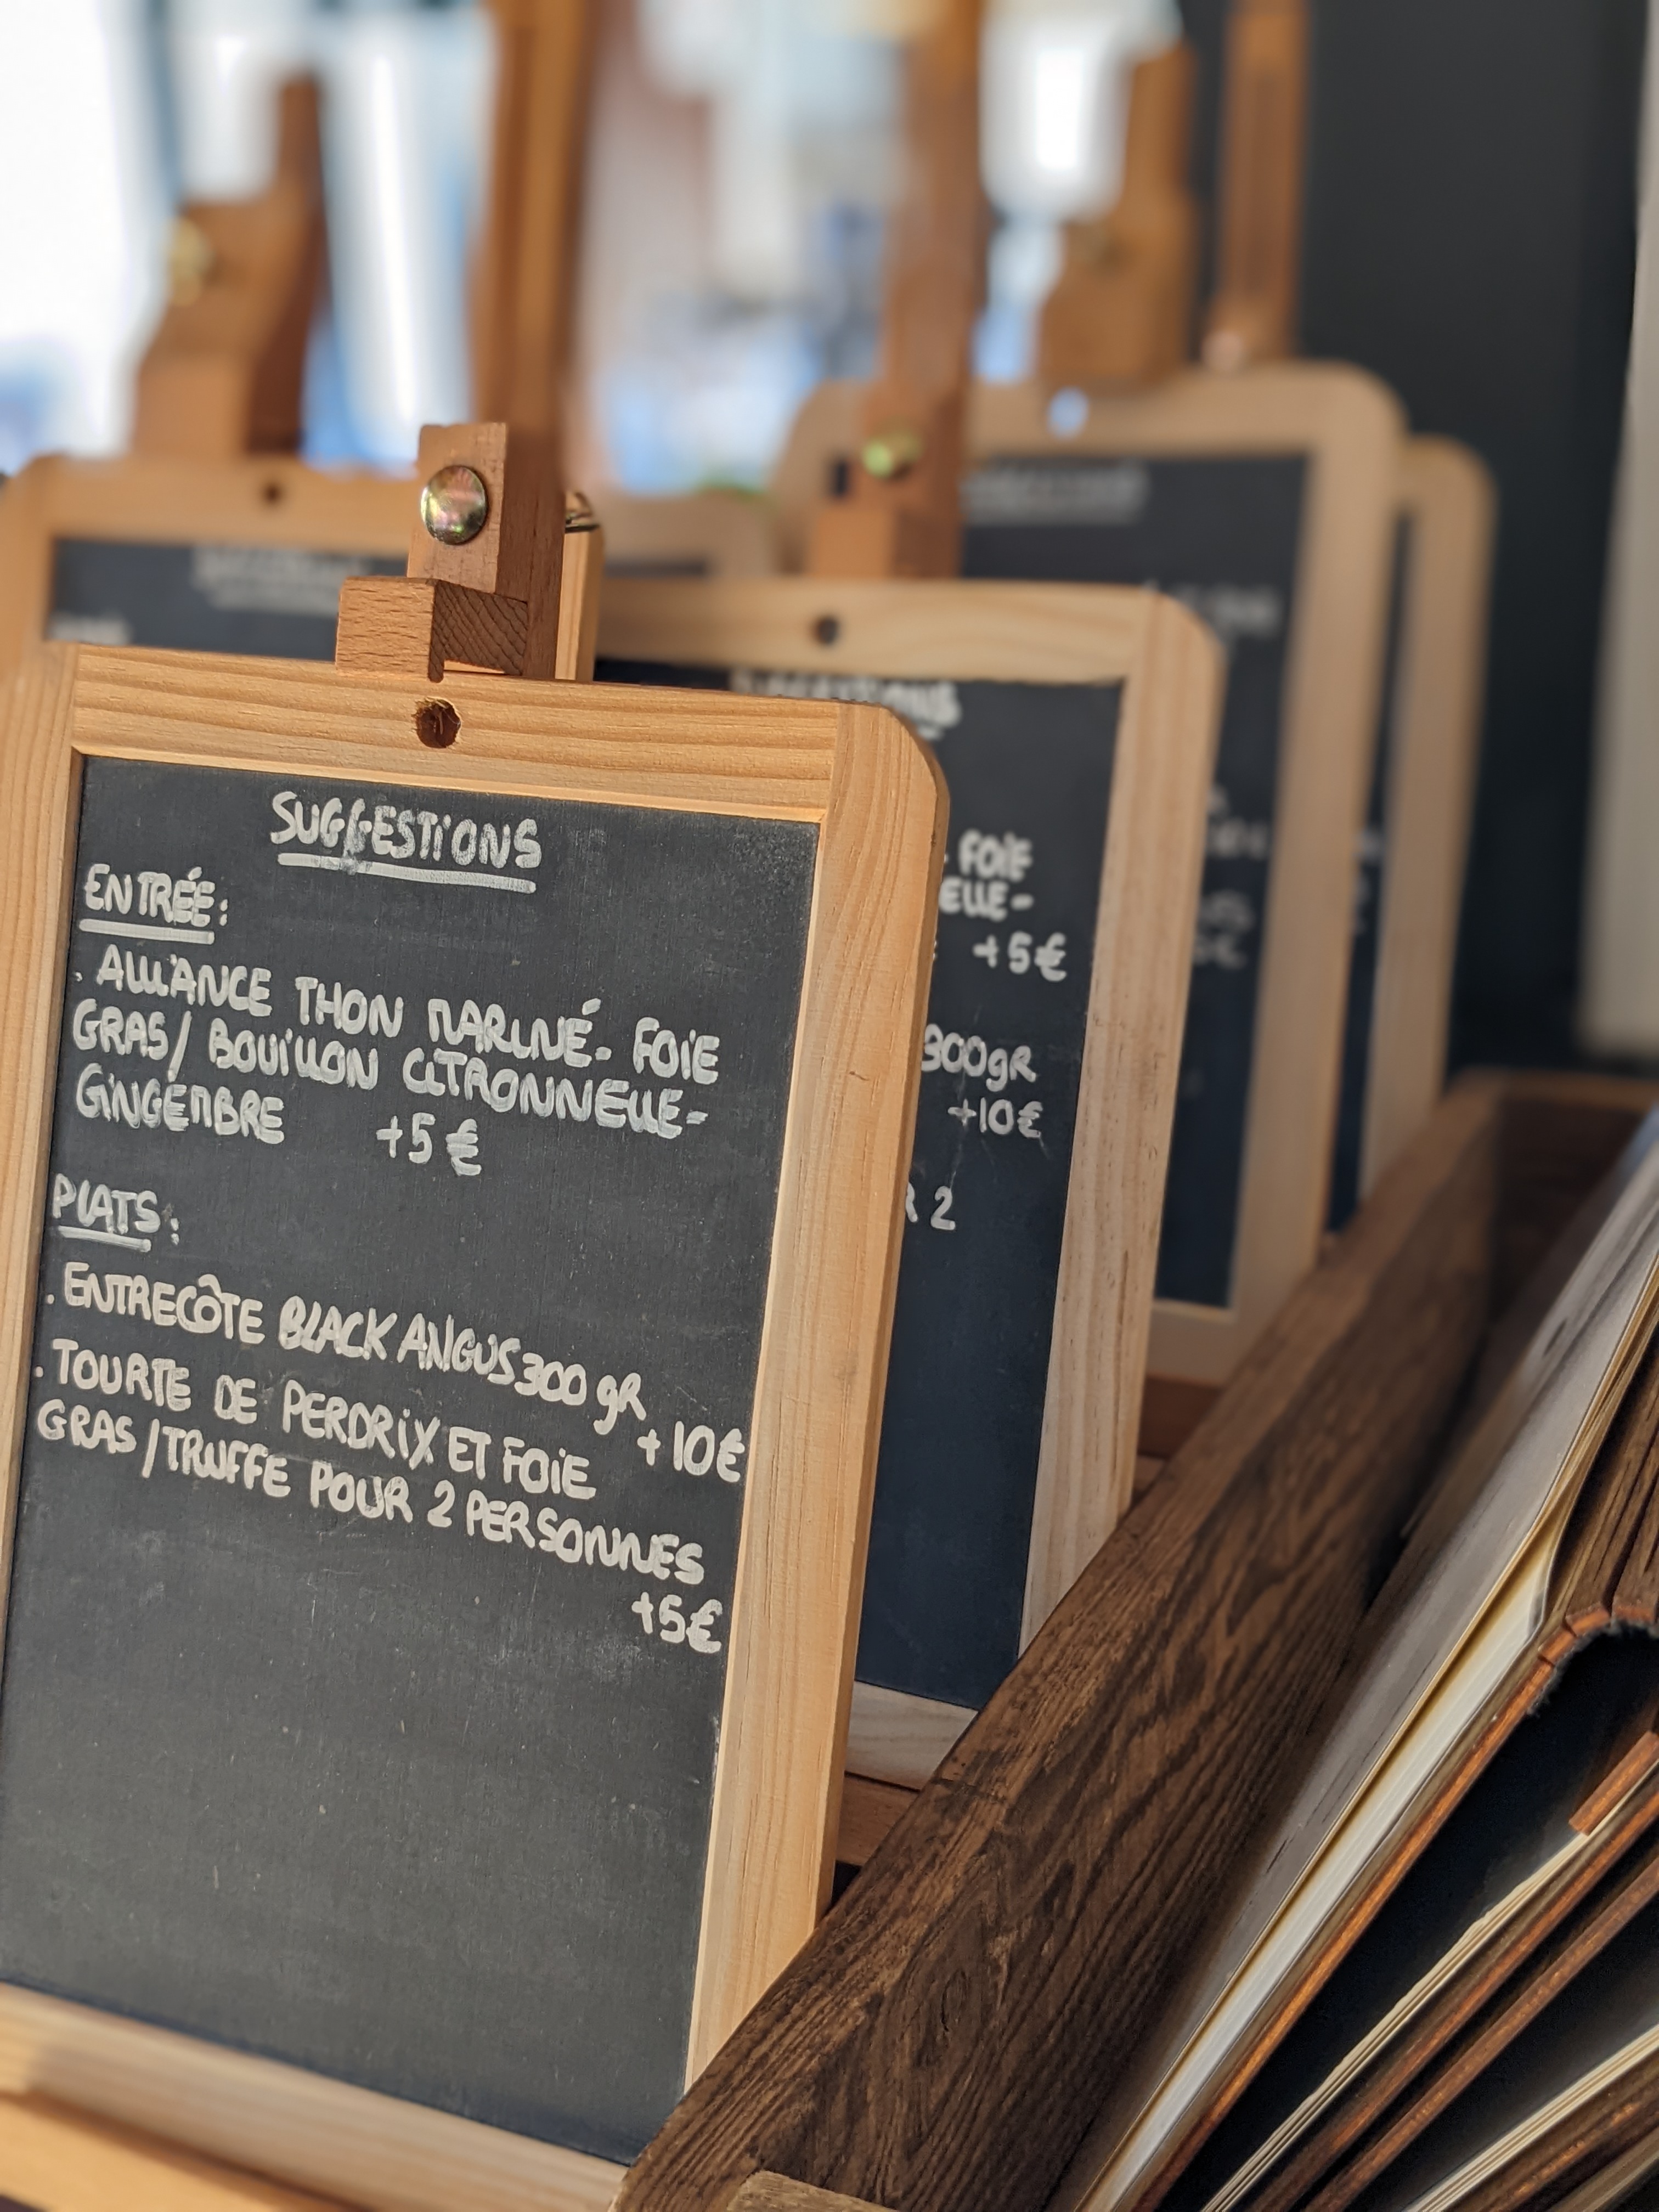 SUGGESTIONS
ENTRÉE:
. ALLIANCE THON MARINÉ- FOIE
GRAS/ BOUILLON CITRONNELLE-
GINGEMBRE +5€
PLATS:
. ENTRECÔTE BLACK ANGUS 300 gR
+10€
. TOURTE DE PERDRIX ET FOIE
GRAS/TRUFFE POUR 2 PERSONNES
+5€
FOIE
ELLE-
+5€
300gR
+10€
R 2